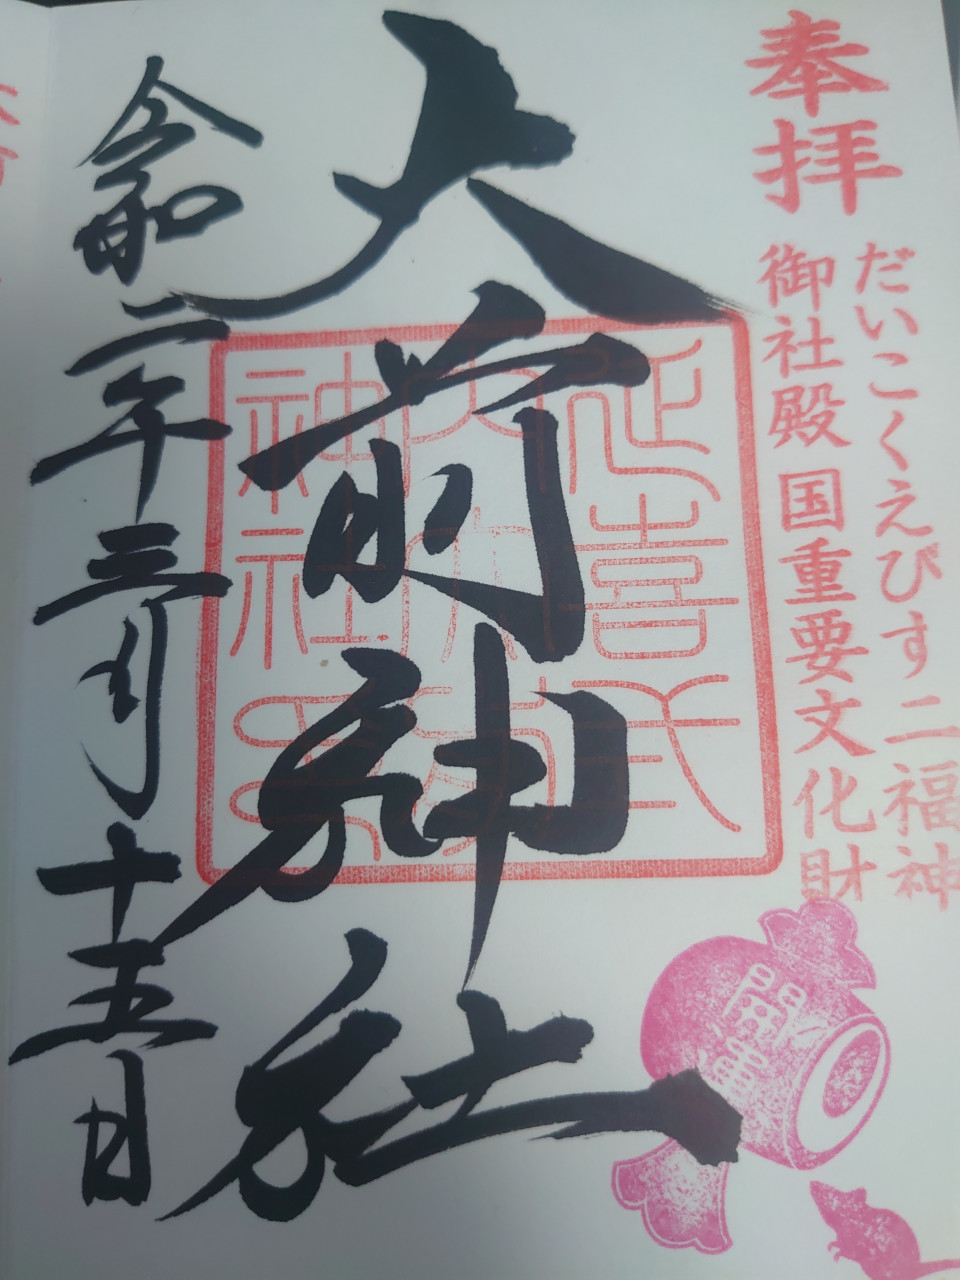 奉拝
だいこくえびす二福神
御社殿 国重要文化財
開運
大前神社
延喜式
神社
令和二年三月十五日